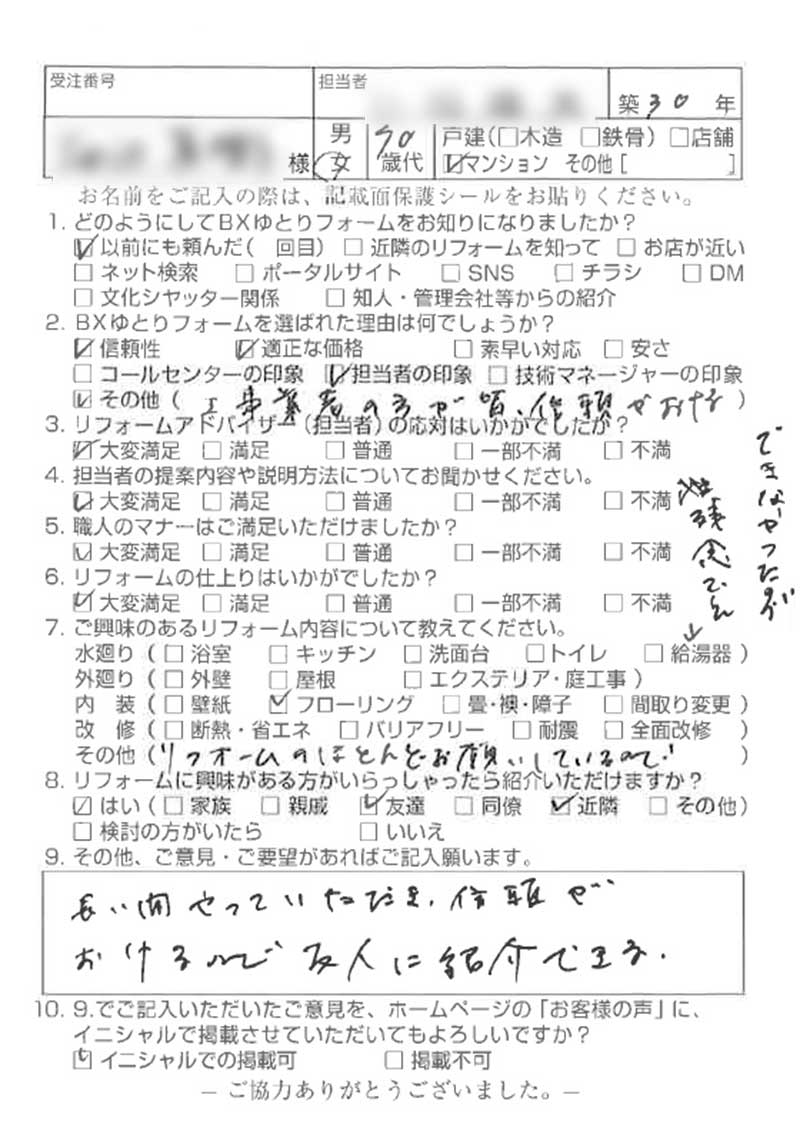 受注番号
担当者
築 30 年
様 男 女 70 歳代
戸建(□木造 □鉄骨) □店舗
☑マンション その他[ ]
お名前をご記入の際は、記載面保護シールをお貼りください。
1. どのようにしてBXゆとりフォームをお知りになりましたか?
☑以前にも頼んだ( 回目) □近隣のリフォームを知って □お店が近い
□ネット検索 □ポータルサイト □SNS □チラシ □DM
□文化シヤッター関係 □知人・管理会社等からの紹介
2. BXゆとりフォームを選ばれた理由は何でしょうか?
☑信頼性 ☑適正な価格 □素早い対応 □安さ
□コールセンターの印象 ☑担当者の印象 □技術マネージャーの印象
☑その他( 工事業者の方が 信頼がおける )
3. リフォームアドバイザー(担当者)の応対はいかがでしたか?
☑大変満足 □満足 □普通 □一部不満 □不満
4. 担当者の提案内容や説明方法についてお聞かせください。
☑大変満足 □満足 □普通 □一部不満 □不満
5. 職人のマナーはご満足いただけましたか?
☑大変満足 □満足 □普通 □一部不満 □不満
6. リフォームの仕上りはいかがでしたか?
☑大変満足 □満足 □普通 □一部不満 □不満
できなかったのが
残念です
7. ご興味のあるリフォーム内容について教えてください。
水廻り(□浴室 □キッチン □洗面台 □トイレ □給湯器)
外廻り(□外壁 □屋根 □エクステリア・庭工事)
内 装(□壁紙 ☑フローリング □畳・襖・障子 □間取り変更)
改 修(□断熱・省エネ □バリアフリー □耐震 □全面改修)
その他(リフォームのほとんどお願いしているので )
8. リフォームに興味がある方がいらっしゃったら紹介いただけますか?
☑はい(□家族 □親戚 ☑友達 □同僚 ☑近隣 □その他)
□検討の方がいたら □いいえ
9. その他、ご意見・ご要望があればご記入願います。
長い間やっていただき、信頼が
おけるので友人に紹介できる.
10. 9.でご記入いただいたご意見を、ホームページの「お客様の声」に、
イニシャルで掲載させていただいてもよろしいですか?
☑イニシャルでの掲載可 □掲載不可
– ご協力ありがとうございました。–